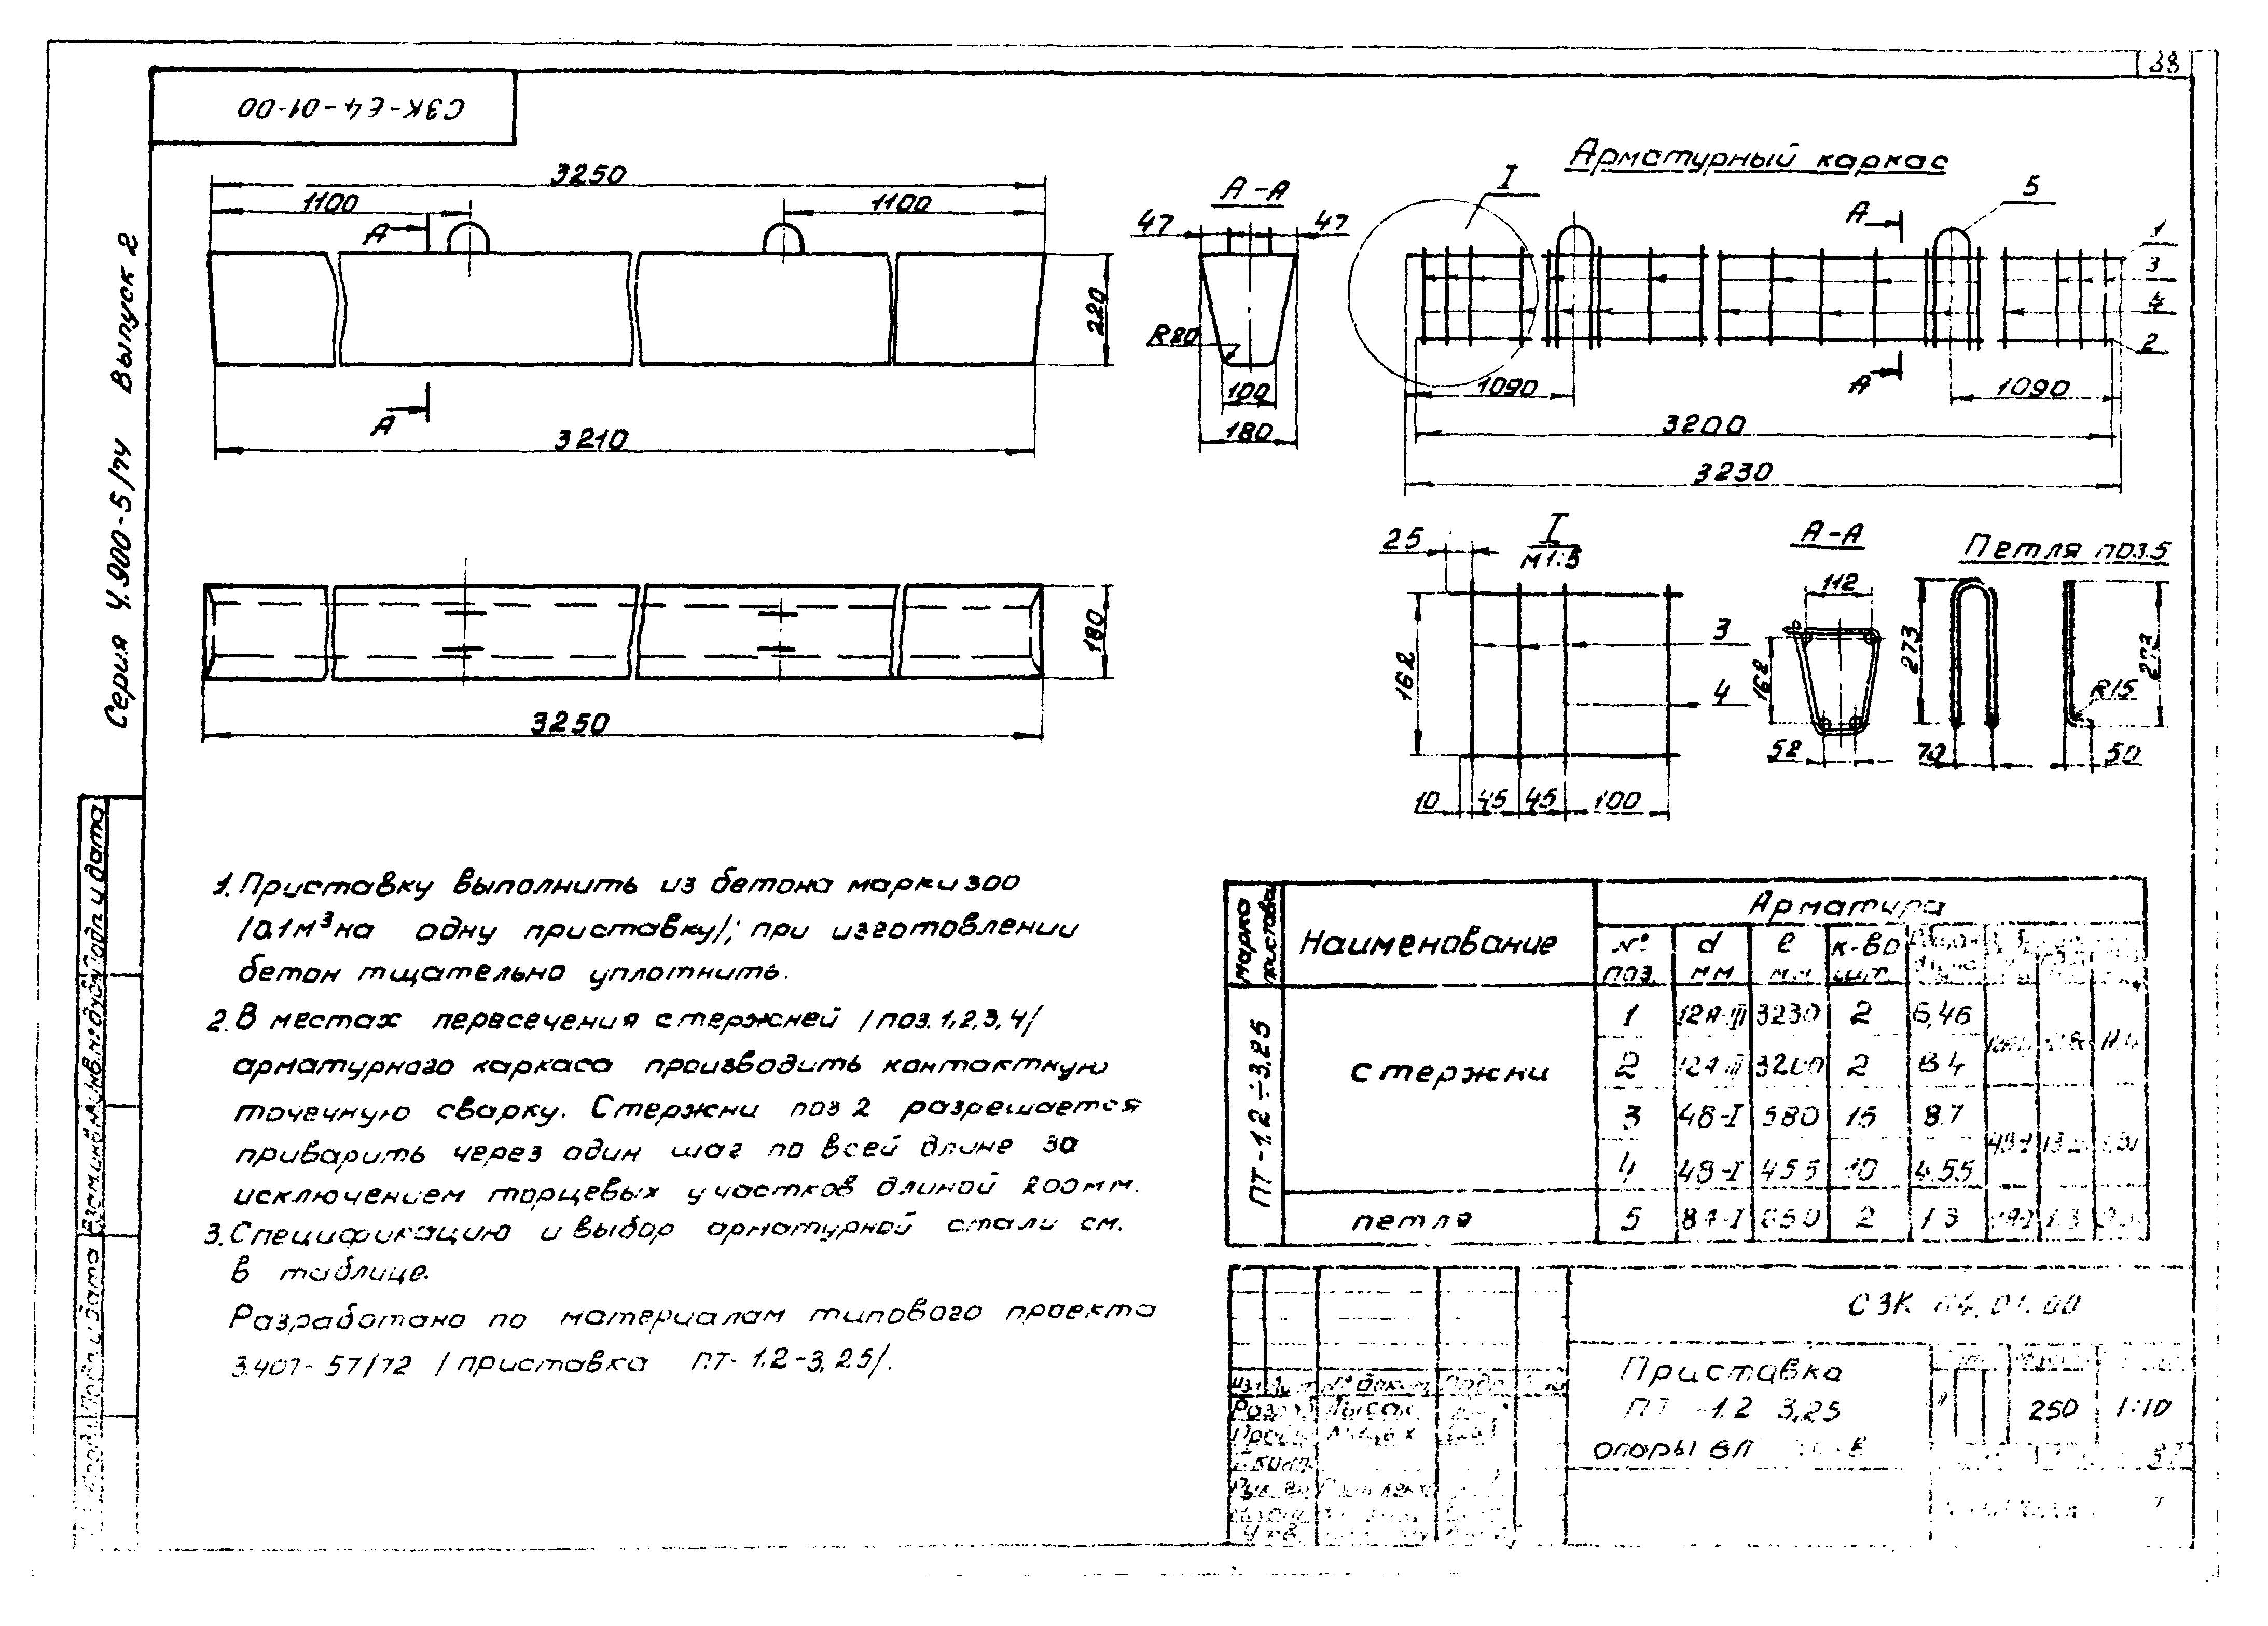 38
СЗК-64-01-00
Серия 4.900-5/74 Выпуск 2
3250
1100
1100
А
А
220
3210
А-А
47
47
R20
100
180
Арматурный каркас
I
5
А
А
1
3
4
2
1090
1090
3200
3230
180
3250
I
М1:5
25
162
3
4
10
45
45
100
А-А
112
162
52
Петля поз.5
273
70
273
R15
50
1. Приставку выполнить из бетона марки 300
/0.1м³ на одну приставку/; при изготовлении
бетон тщательно уплотнить.
2. В местах пересечения стержней /поз. 1,2,3,4/
арматурного каркаса производить контактную
точечную сварку. Стержни поз 2 разрешается
приварить через один шаг по всей длине за
исключением торцевых участков длиной 200мм.
3. Спецификацию и выбор арматурной стали см.
в таблице.
Разработано по материалам типового проекта
3.407-57/72 /приставка ПТ-1.2-3,25/.
Марка приставки
Наименование
Арматура
№ поз.
d мм
l мм
к-во шт.
ПТ-1.2÷3.25
стержни
1 12А-III 3230 2 6,46
2 12А-III 3200 2 6.4
3 4В-I 580 15 8.7
4 4В-I 455 10 4.55
петля 5 8А-I 650 2 1.3
СЗК 01.00
Приставка
ПТ -1.2 3,25
опоры ВЛ
250
1:10
№ докум.
Лысак
Подп. и дата
Взам.инв.№
Инв.№ дубл.
Подп. и дата